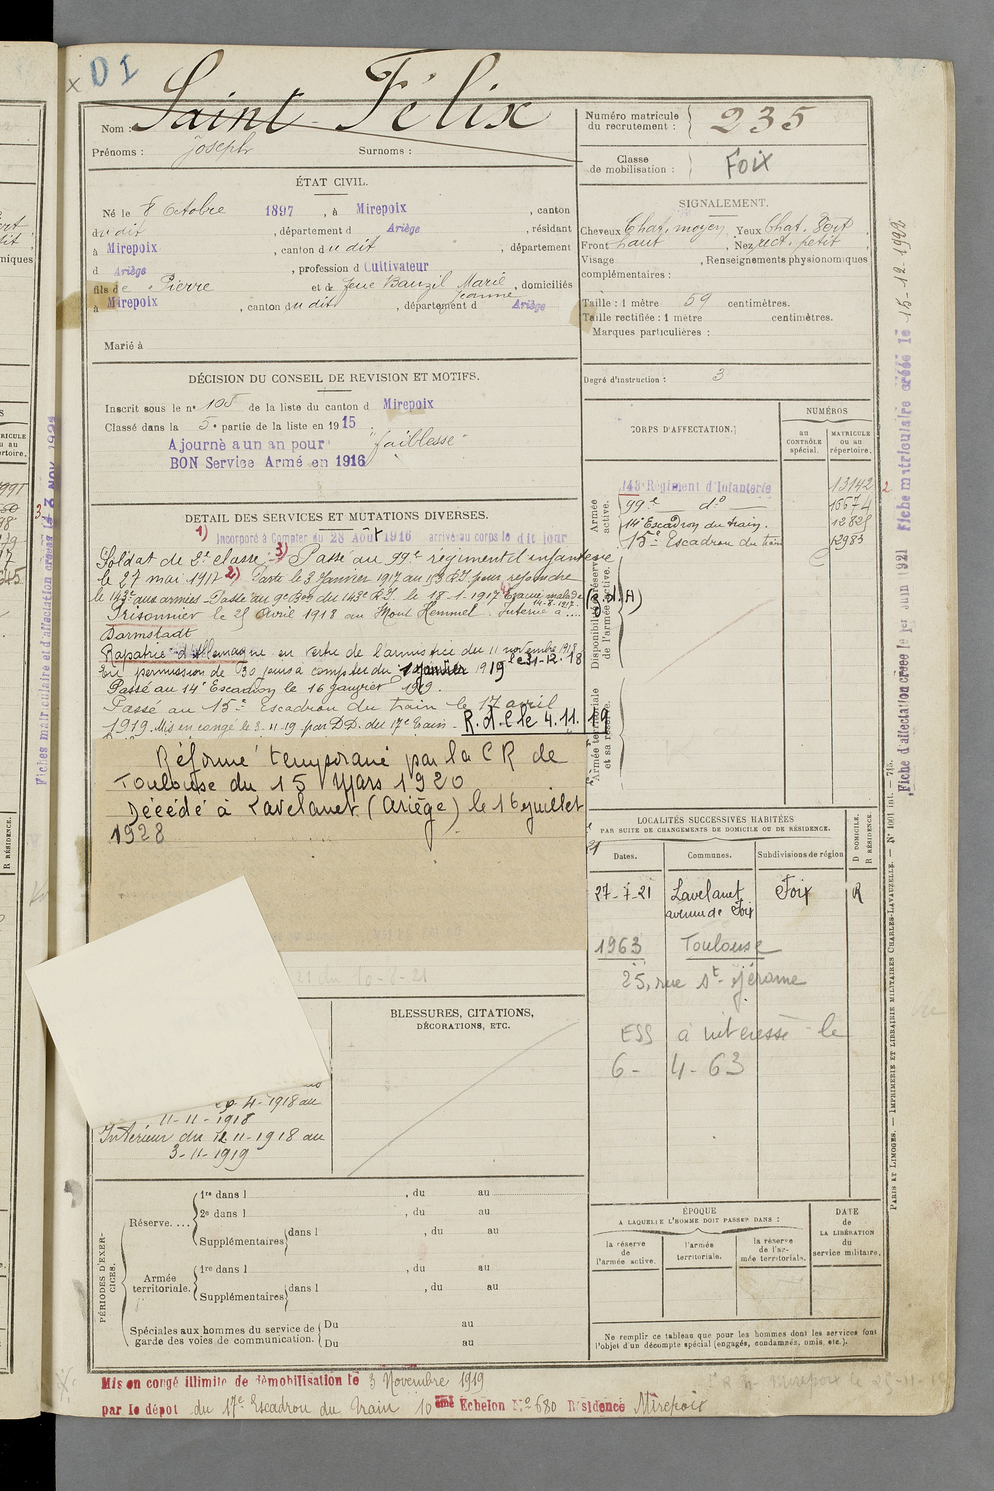 D I
Nom : Saint-Félix
Prénoms : Joseph Surnoms :
Numéro matricule du recrutement : 235
Classe de mobilisation : Foix
ÉTAT CIVIL.
Né le 8 Octobre 1897, à Mirepoix, canton
du dit, département d Ariège, résidant
à Mirepoix, canton du dit, département
d Ariège, profession d Cultivateur
fils de Pierre et de feue Bauzil Marie Jeanne, domiciliés
à Mirepoix, canton du dit, département d Ariège
Marié à
SIGNALEMENT.
Cheveux Chat. moyen, Yeux Chat. vert,
Front haut, Nez rect. petit
Visage , Renseignements physionomiques
complémentaires :
Taille : 1 mètre 59 centimètres.
Taille rectifiée : 1 mètre centimètres.
Marques particulières :
Degré d'instruction : 3
DÉCISION DU CONSEIL DE REVISION ET MOTIFS.
Inscrit sous le n° 105 de la liste du canton d Mirepoix
Classé dans la 5e partie de la liste en 1915
Ajourné a un an pour "faiblesse"
BON Service Armé en 1916
CORPS D'AFFECTATION.
NUMÉROS
au CONTRÔLE spécial.
MATRICULE ou au répertoire.
Armée active.
143e Régiment d'Infanterie 13142
99e do 16674
14e Escadron du train. 12828
15e Escadron du train 12983
Disponibilité et réserve de l'armée active.
Armée territoriale et sa réserve.
DÉTAIL DES SERVICES ET MUTATIONS DIVERSES.
1) Incorporé à Compter du 28 Août 1916 arrivé au corps le dit jour
Soldat de 2e classe, 3) Passé au 99e régiment d'infanterie
le 27 mai 1917 2) Passé le 3 Janvier 1917 au R.I. pour rejoindre
le 143e aux armées - Passé au 9e Bon du 143e R.I. le 18-1-1917 4) Evacué malade
14-8-1917.
Prisonnier le 25 Avril 1918 au Mont Kemmel. Interné à ....
Darmstadt
Rapatrié d'Allemagne en vertu de l'armistice du 11 novembre 1918 le 31-12-18
En permission de 30 jours à compter du 1 janvier 1919
Passé au 14e Escadron le 16 janvier 1919.
Passé au 15e Escadron du train le 17 avril
1919. Mis en congé le 3-11-19 par D.D. du 17e train - R.d.C le 4.11.19
Réformé temporaire par la CR de
Toulouse du 15 Mars 1920
Décédé à Lavelanet (Ariège) le 16 juillet
1928
21 du 10-8-21
BLESSURES, CITATIONS,
DÉCORATIONS, ETC.
4-1918 au
11-11-1918
Intérieur du 12-11-1918 au
3-11-1919
LOCALITÉS SUCCESSIVES HABITÉES
PAR SUITE DE CHANGEMENTS DE DOMICILE OU DE RÉSIDENCE.
Dates. Communes. Subdivisions de région D DOMICILE. R RÉSIDENCE.
27-7-21 Lavelanet avenue de Foix Foix R
1963 Toulouse
25, rue St-Jérome
ESS à intéressé le
6- 4-63
PÉRIODES D'EXERCICES.
Réserve....
1re dans l , du au
2e dans l , du au
Supplémentaires dans l , du au
Armée territoriale.
1re dans l , du au
Supplémentaires dans l , du au
Spéciales aux hommes du service de garde des voies de communication.
Du au
Du au
ÉPOQUE
A LAQUELLE L'HOMME DOIT PASSER DANS :
la réserve de l'armée active.
l'armée territoriale.
la réserve de l'armée territoriale.
DATE de LA LIBÉRATION du service militaire.
Ne remplir ce tableau que pour les hommes dont les services font
l'objet d'un décompte spécial (engagés, condamnés, omis, etc.).
Mis en congé illimité de démobilisation le 3 Novembre 1919
par le dépôt du 17e Escadron du Train 10ème Echelon No 680 Résidence Mirepoix
Fiches matriculaire et d'affectation créées le 3 NOV 1921
Fiche d'affectation créée le 1er Juin 1921 Fiche matriculaire créée le 15-12-1922
PARIS ET LIMOGES. — IMPRIMERIE ET LIBRAIRIE MILITAIRES CHARLES-LAVAUZELLE. — N° 1001 int. — 715.